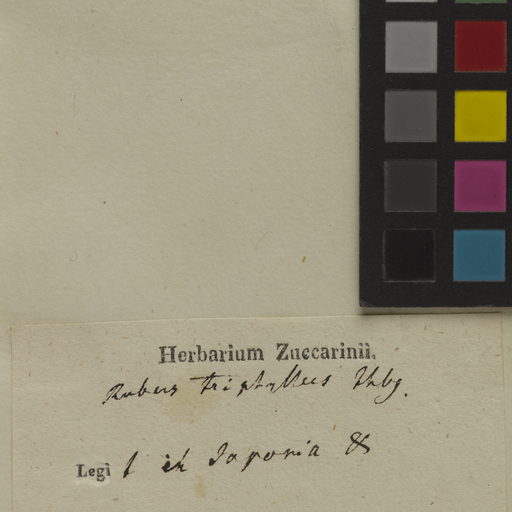 Herbarium Zuccarinii.
Rubus triphyllus Thbg.
Legi in Japonia